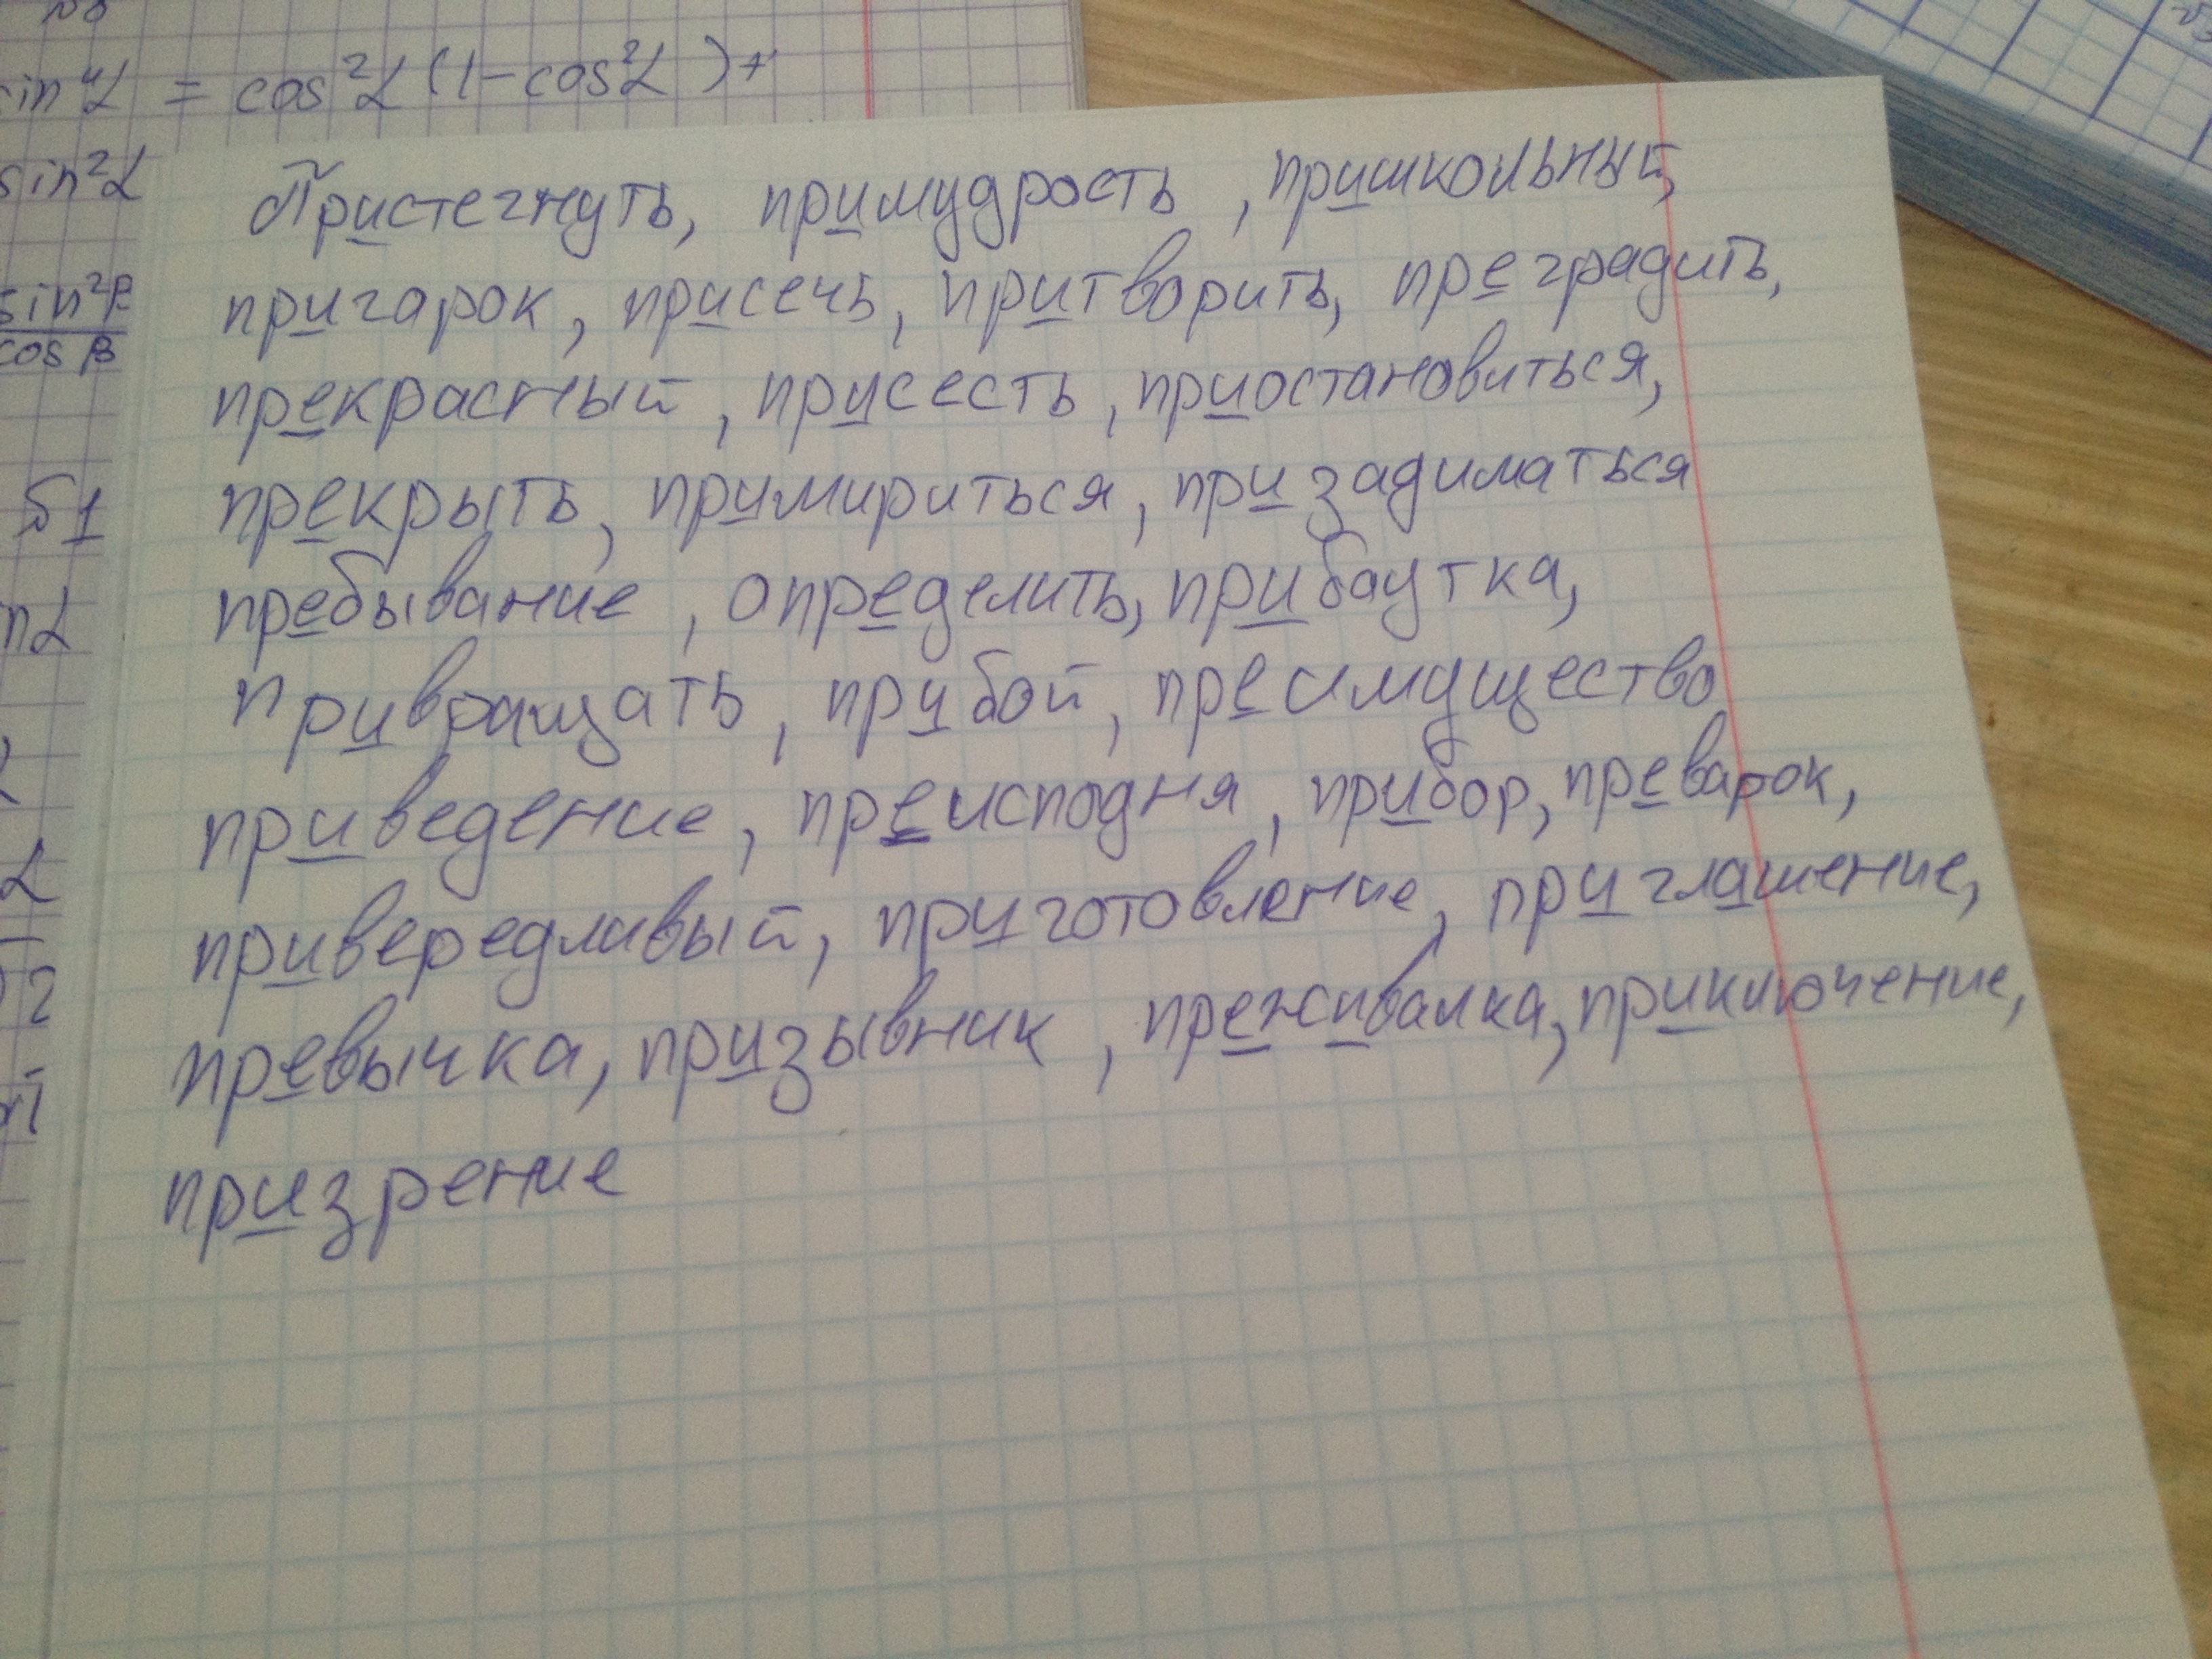 sin⁴α = cos²α(1-cos²α)+
sin²α
sin²β
cos β
Б1
Пристегнуть, примудрость, пришкольный,
пригарок, присечь, притворить, преградить,
прекрасный, присесть, приостановиться,
прекрыть, примириться, призадиматься
пребывание, определить, прибаутка,
привращать, прибой, преимущество
приведение, преисподня, прибор, преварок,
привередливый, приготовление, приглашение,
превычка, призывник, преживалка, приключение,
призрение